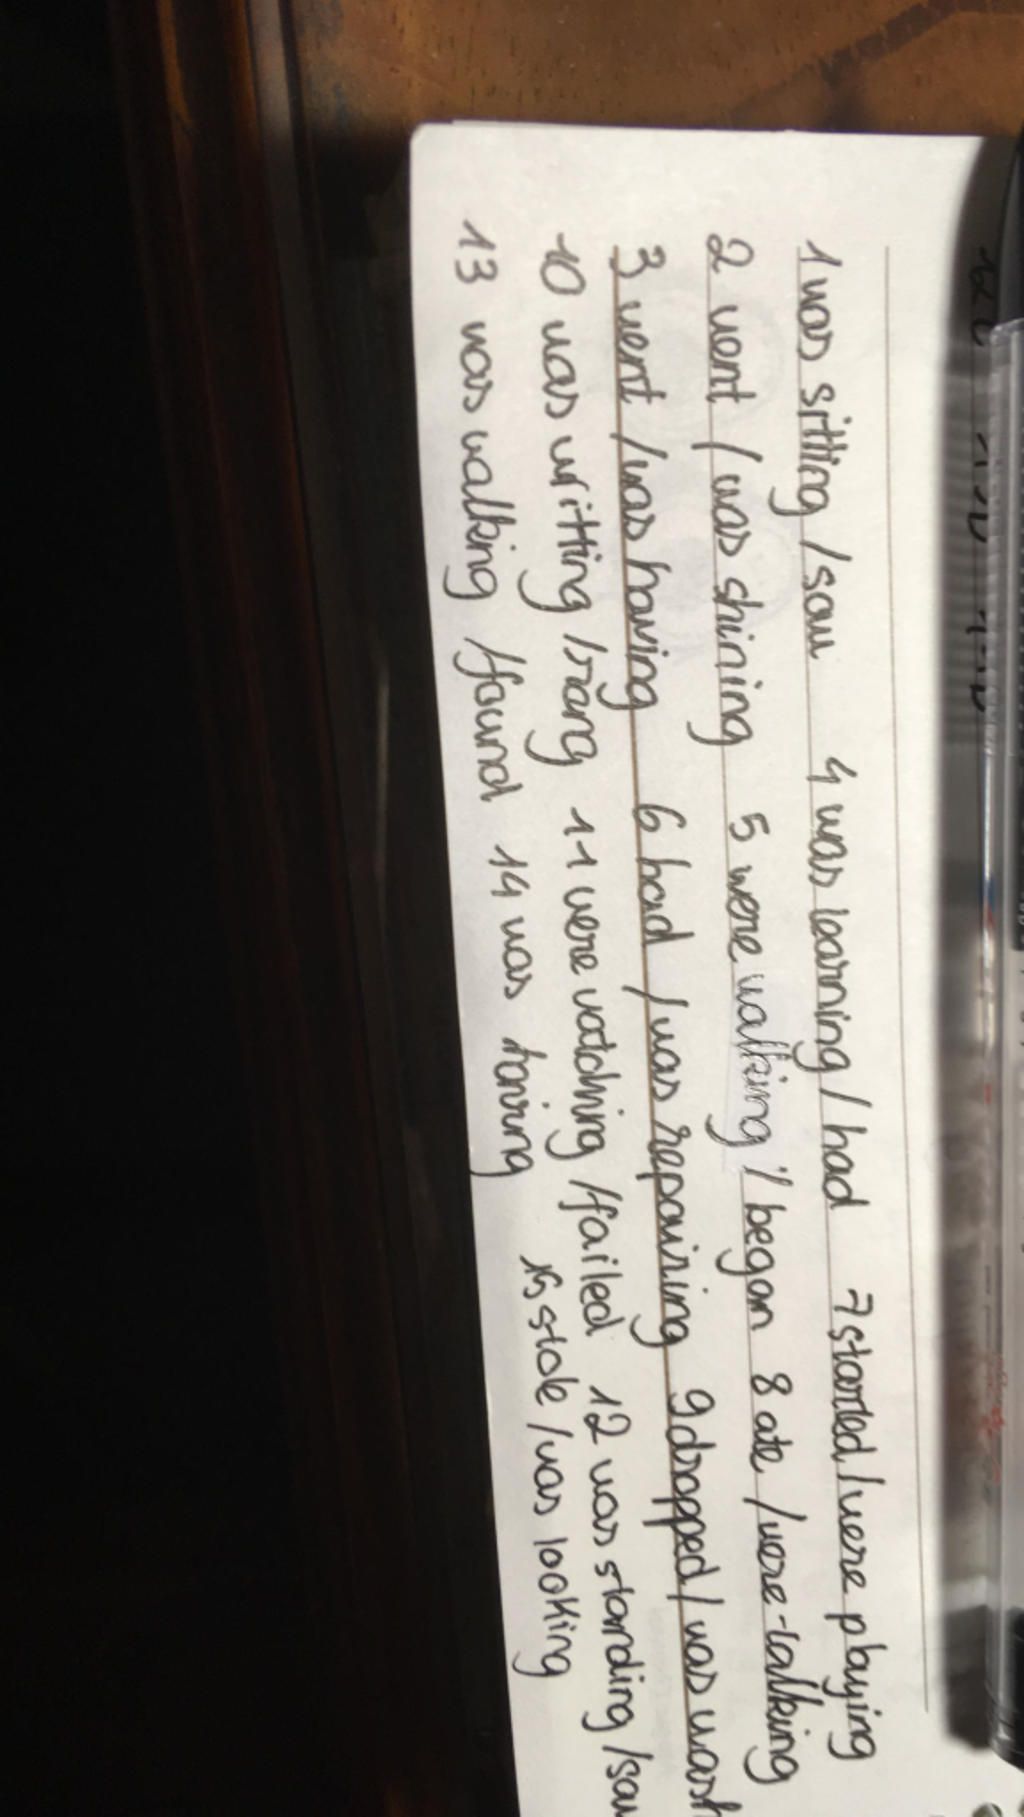 1 was sitting / saw 4 was learning / had 7 started / were playing
2 went / was shining 5 were walking / began 8 ate / were talking
3 went / was having 6 had / was repairing 9 dropped / was wash
10 was writting / rang 11 were watching / failed 12 was standing / saw
13 was walking / found 14 was having 15 stole / was looking